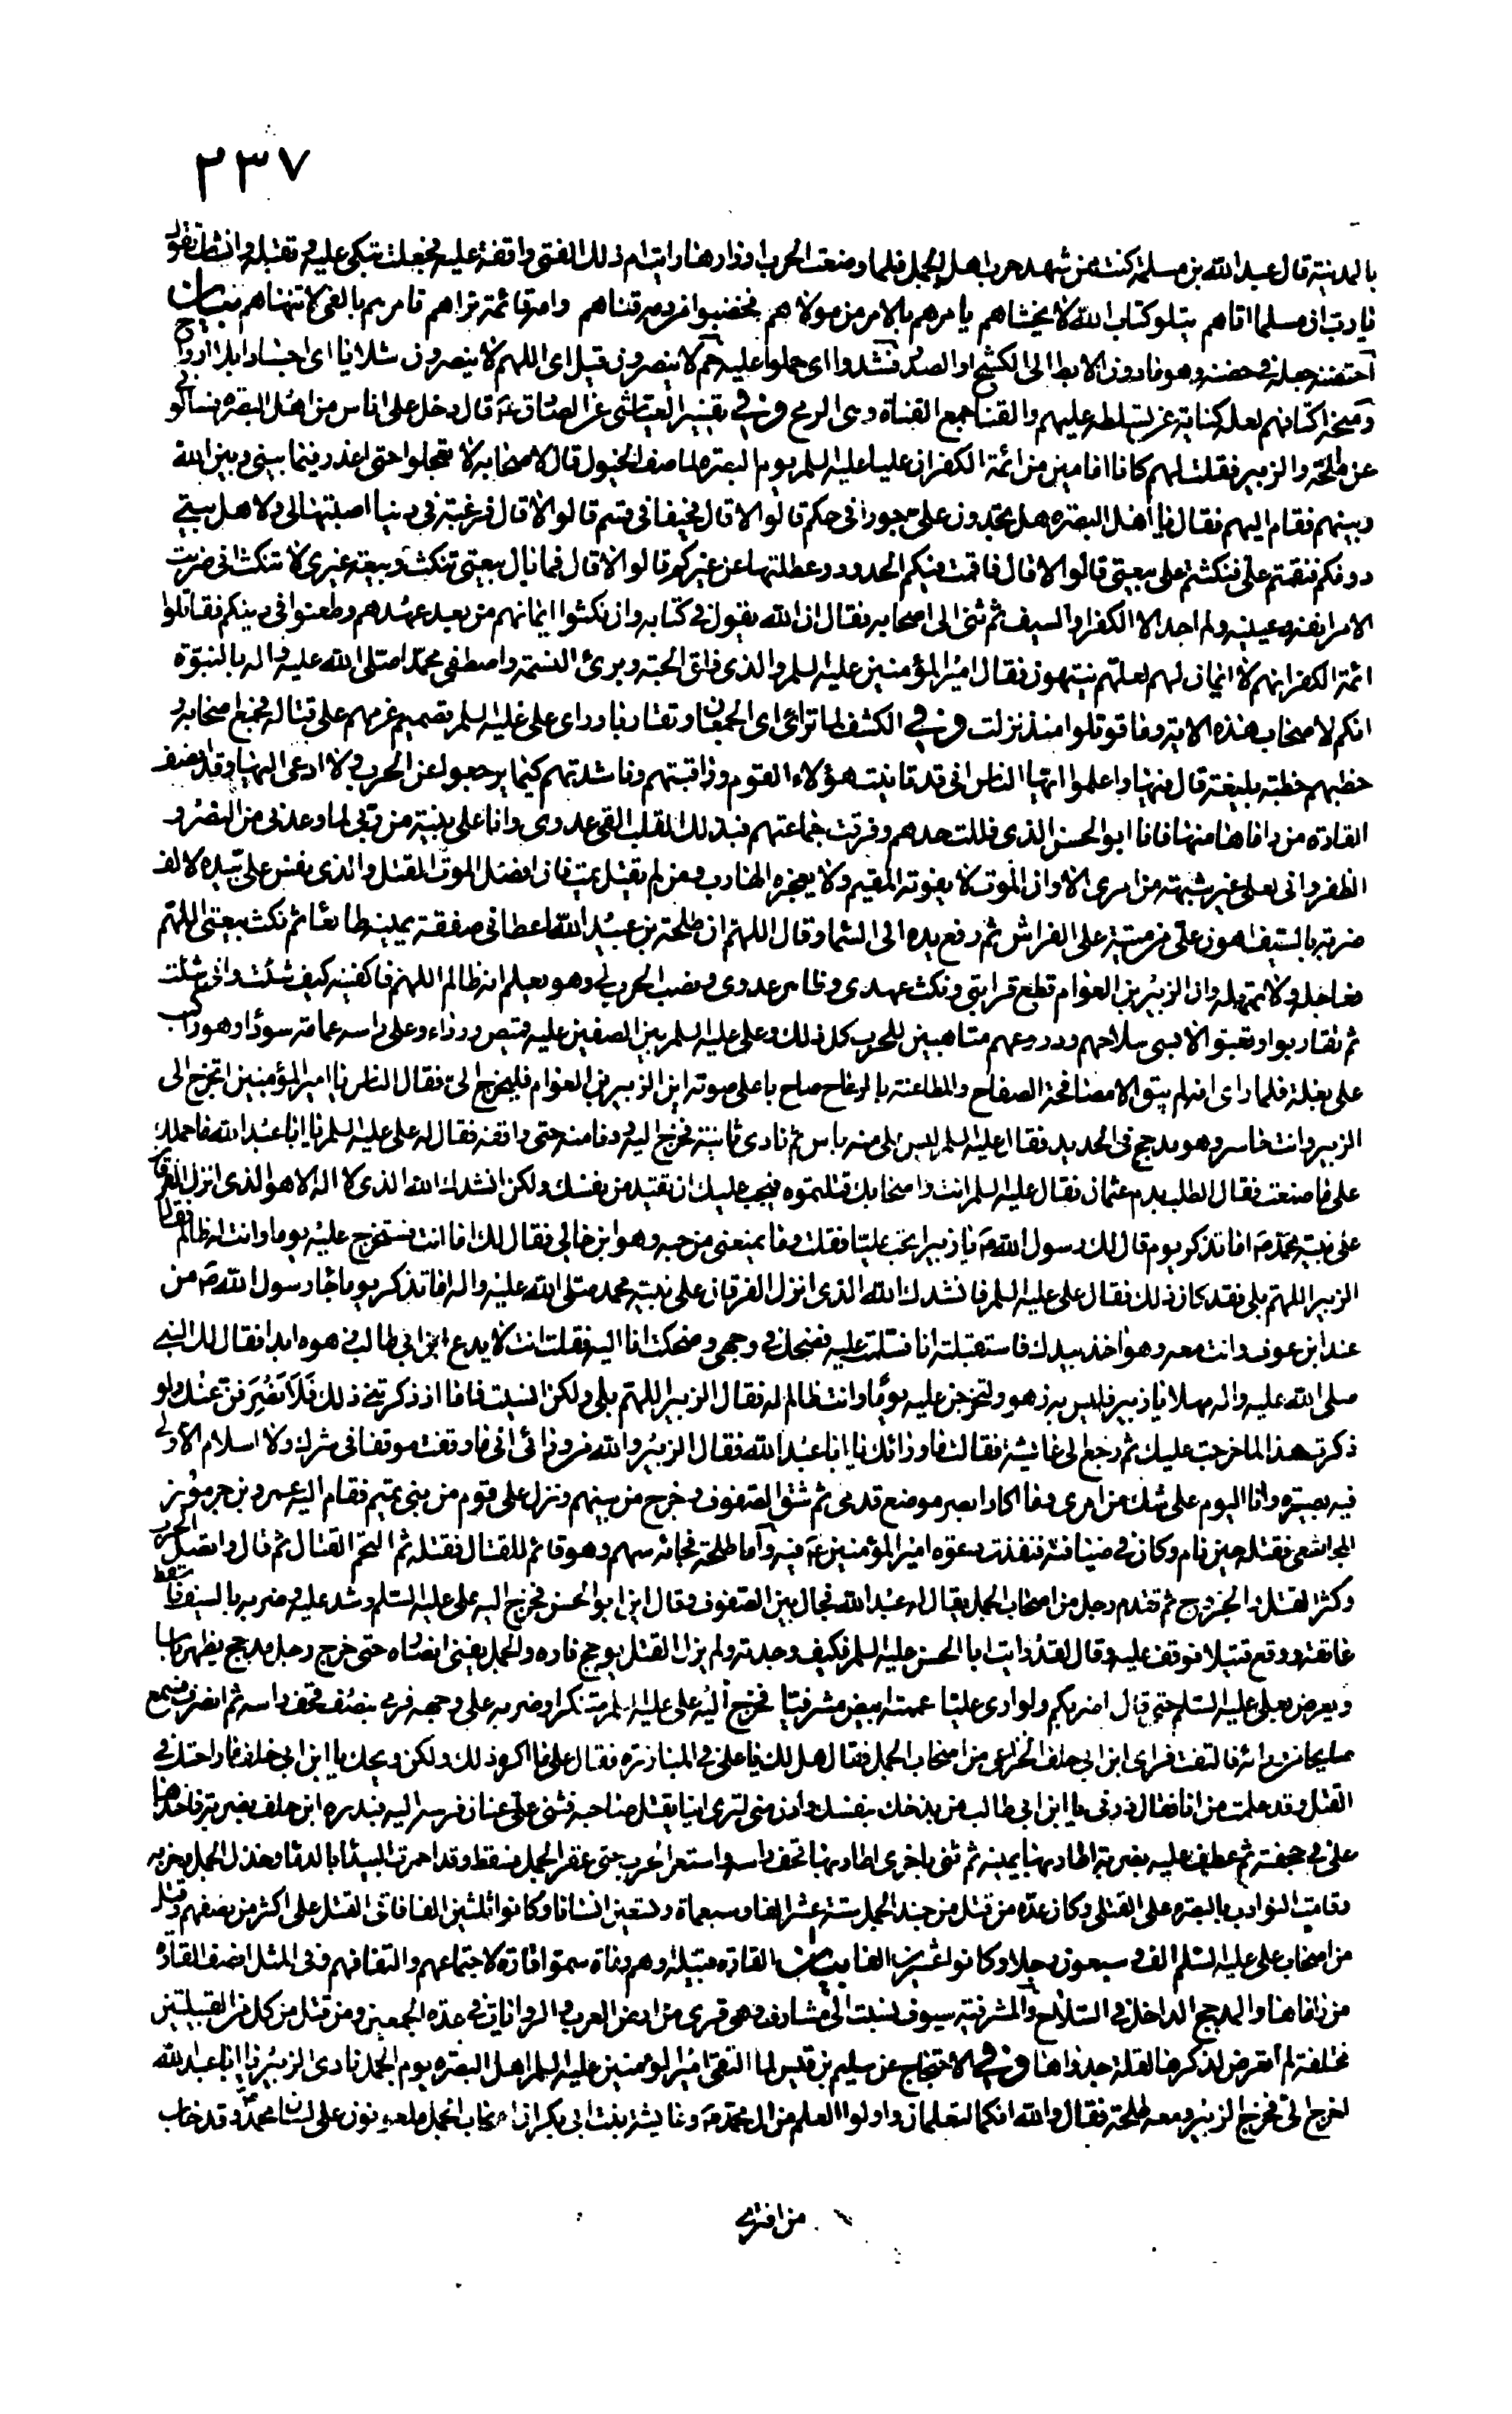 ٢٣٧
بالمدينة قال عبد الله بن مسلمة كنت ممن شهد حرب اهل الجمل فلما وضعت الحرب اوزارها رايت ام ذلك الفتى واقفة عليه فجعلت تبكي عليه وتقبله وانشات تقول
يا رب ان مسلما اتاهم يتلو كتاب الله لا يخشاهم يامرهم بالامر من مولاهم فخضبوا من دمه قناهم وامه قائمة تراهم تامرهم بالغي لا تنهاهم بيان
احتضنه جعله في حضنه وهو ما دون الابط الى الكشح او الصدر فشدوا اي حملوا عليه حم لا ينصرون قيل اي اللهم لا ينصرون شلايا اي اجسادا بلا ارواح
ومنحه اكتافهم لعله كناية عن تسلطه عليهم والقنا جمع القناة وهي الرمح وفي تفسير العياشي عن الصادق ع قال دخل علي اناس من اهل البصره فسالوني
عن طلحة والزبير فقلت لهم كانا امامين من ائمة الكفر ان عليا عليه السلم يوم البصره لما صف الخيول قال لاصحابه لا تعجلوا حتى اعذر فيما بيني وبين الله
وبينهم فقام اليهم فقال يا اهل البصره هل تجدون علي جورا في حكم قالوا لا قال فحيفا في قسم قالوا لا قال فرغبة في دنيا اصبتها لي ولاهل بيتي
دونكم فنقمتم علي فنكثتم علي بيعتي قالوا لا قال فاقمت فيكم الحدود وعطلتها عن غيركم قالوا لا قال فما بال بيعتي تنكث وبيعة غيري لا تنكث اني ضربت
الامر انفه وعينيه ولم اجد الا الكفر او السيف ثم ثنى الى اصحابه فقال ان الله يقول في كتابه وان نكثوا ايمانهم من بعد عهدهم وطعنوا في دينكم فقاتلوا
ائمة الكفر انهم لا ايمان لهم لعلهم ينتهون فقال امير المؤمنين عليه السلم والذي فلق الحبة وبرئ النسمة واصطفى محمدا صلى الله عليه واله بالنبوة
انكم لاصحاب هذه الاية وما قوتلوا منذ نزلت وفي الكشف لما ترائى الجمعان وتقاربا وراى علي عليه السلم تصميم عزمهم على قتاله فجمع اصحابه و
خطبهم خطبة بليغة قال فيها واعلموا ايها الناس اني قد تانيت هؤلاء القوم وراقبتهم وناشدتهم كيما يرجعوا عن الحرب ولا ادعى اليها وقد انصف
القارة من راماها منها فانا ابو الحسن الذي فللت حدهم وفرقت جماعتهم فبذلك القلب القى عدوي وانا على بينة من ربي لما وعدني من النصر و
الظفر واني لعلى غير شبهة من امري الا وان الموت لا يفوته المقيم ولا يعجزه الهارب ومن لم يقتل يمت فان افضل الموت القتل والذي نفس علي بيده لالف
ضربة بالسيف اهون علي من ميتة على الفراش ثم رفع يده الى السماء وقال اللهم ان طلحة بن عبيد الله اعطاني صفقة يمينه طائعا ثم نكث بيعتي اللهم
فعاجله ولا تمهله وان الزبير بن العوام قطع قرابتي ونكث عهدي وظاهر عدوي ونصب الحرب لي وهو يعلم انه ظالم اللهم فاكفنيه كيف شئت وانى شئت
ثم تقاربوا وتعبئوا لابسي سلاحهم ودروعهم متاهبين للحرب كل ذلك وعلي عليه السلم بين الصفين عليه قميص ورداء وعلى راسه عمامة سوداء وهو راكب
على بغلة فلما راى انه لم يبق الا مصافحة الصفاح والمطاعنة بالرماح صاح باعلى صوته اين الزبير بن العوام فليخرج الي فقال الناس يا امير المؤمنين اتخرج الى
الزبير وانت حاسر وهو مدجج في الحديد فقال عليه السلم ليس علي منه باس ثم نادى ثانية فخرج اليه ودنا منه حتى واقفه فقال له علي عليه السلم يا ابا عبد الله ما حملك
على ما صنعت فقال الطلب بدم عثمان فقال عليه السلم انت واصحابك قتلتموه فيجب عليك ان تقيد من نفسك ولكن انشدك الله الذي لا اله الا هو الذي انزل الفرقان
على نبيه محمد ص اما تذكر يوم قال لك رسول الله ص يا زبير اتحب عليا فقلت وما يمنعني من حبه وهو ابن خالي فقال لك اما انت فستخرج عليه يوما وانت له ظالم فقال
الزبير اللهم بلى فقد كان ذلك فقال علي عليه السلم فانشدك الله الذي انزل الفرقان على نبيه محمد صلى الله عليه واله اما تذكر يوما جاء رسول الله ص من
عند ابن عوف وانت معه وهو اخذ بيدك فاستقبلته انا فسلمت عليه فضحك في وجهي وضحكت انا اليه فقلت انت لا يدع ابن ابي طالب زهوه ابدا فقال لك النبي
صلى الله عليه واله مهلا يا زبير فليس به زهو ولتخرجن عليه يوما وانت ظالم له فقال الزبير اللهم بلى ولكن انسيت فاما اذ ذكرتني ذلك فلانصرفن عنك ولو
ذكرت هذا لما خرجت عليك ثم رجع الى عائشة فقالت ما وراءك يا ابا عبد الله فقال الزبير والله ورائي اني ما وقفت موقفا في شرك ولا اسلام الا ولي
فيه بصيرة وانا اليوم على شك من امري وما اكاد ابصر موضع قدمي ثم شق الصفوف وخرج من بينهم ونزل على قوم من بني تميم فقام اليه عمرو بن جرموز
المجاشعي فقتله حين نام وكان في ضيافته فنفذت دعوة امير المؤمنين ع فيه واما طلحة فجائه سهم وهو قائم للقتال فقتله ثم التحم القتال ثم قال واتصل الحرب
وكثر القتل والجروح ثم تقدم رجل من اصحاب الجمل يقال له عبد الله فجال بين الصفوف وقال اين ابو الحسن فخرج اليه علي عليه السلم وشد عليه وضربه بالسيف فاسقط
عاتقه ووقع قتيلا فوقف عليه وقال لقد رايت ابا الحسن عليه السلم فكيف وجدته ولم يزل القتل يوجج ناره والجمل يفني انصاره حتى خرج رجل مدجج يظهر باسا
ويعرض بعلي عليه السلم حتى قال اضربكم ولو ارى عليا عممته ابيض مشرفيا فخرج اليه علي عليه السلم متنكرا وضربه على وجهه فرمى بنصف قحف راسه ثم انصرف فسمع
صايحا من ورائه فالتفت فراى ابن ابي خلف الخزاعي من اصحاب الجمل فقال هل لك يا علي في المبارزة فقال علي ما اكره ذلك ولكن ويحك يا ابن ابي خلف ما راحتك في
القتل وقد علمت من انا فقال ذرني يا ابن ابي طالب من بذخك بنفسك وادن مني لترى اينا يقتل صاحبه فثنى علي عنان فرسه اليه فبدره ابن خلف بضربة فاخذها
علي في جحفته ثم عطف عليه بضربة اطار بها يمينه ثم ثنى باخرى اطار بها قحف راسه واستعر الحرب حتى عقر الجمل فسقط وقد احمرت البيداء بالدماء وخذل الجمل وحزبه
وقامت النوادب بالبصرة على القتلى وكان عدة من قتل من جند الجمل ستة عشر الفا وسبعماة وتسعين انسانا وكانوا ثلثين الفا فاتى القتل على اكثر من نصفهم وقتل
من اصحاب علي عليه السلم الف وسبعون رجلا وكانوا عشرين الفا بيان القارة قبيلة وهم رماة سموا قارة لاجتماعهم والتفافهم وفي المثل انصف القارة
من راماها والمدجج الداخل في السلاح والمشرفية سيوف نسبت الى مشارف وهي قرى من ارض العرب والروايات في عدة الجمعين ومن قتل من كل من القبيلتين
مختلفة لم اتعرض لذكرها لقلة جدواها وفي الاحتجاج عن سليم بن قيس لما التقى امير المؤمنين عليه السلم اهل البصره يوم الجمل نادى الزبير يا ابا عبد الله
اخرج الي فخرج الزبير ومعه طلحة فقال والله انكما لتعلمان واولوا العلم من ال محمد ص وعايشة بنت ابي بكر ان اصحاب الجمل ملعونون على لسان محمد ص وقد خاب
من افترى